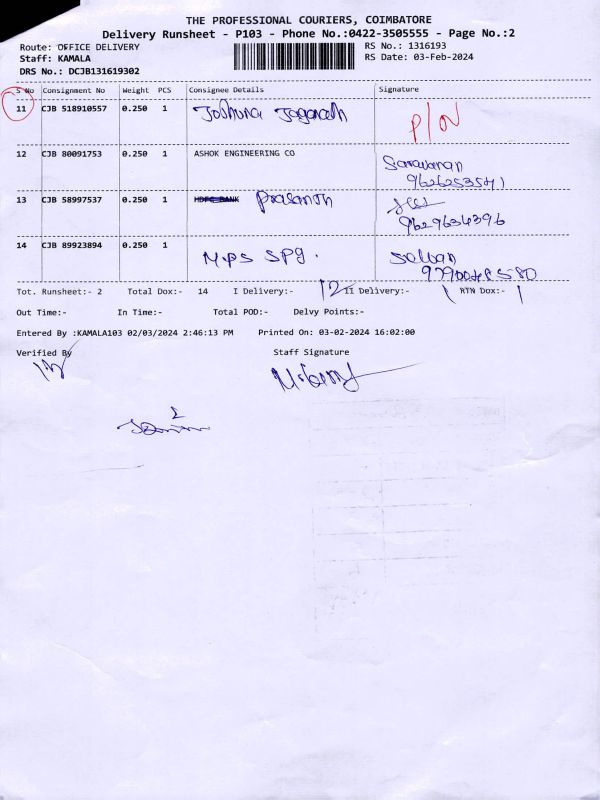 THE PROFESSIONAL COURIERS, COIMBATORE
Delivery Runsheet - P103 - Phone No.:0422-3505555 - Page No.:2
Route: OFFICE DELIVERY RS No.: 1316193
Staff: KAMALA RS Date: 03-Feb-2024
DRS No.: DCJB131619302
S No Consignment No Weight PCS Consignee Details Signature
11 CJB 518910557 0.250 1 Joshuna Jaganath P/N
12 CJB 80091753 0.250 1 ASHOK ENGINEERING CO Saravanan
9626253541
13 CJB 58997537 0.250 1 HDFC BANK Prasanth
9629634396
14 CJB 89923894 0.250 1 M.P.S SPG. Selvan
Tot. Runsheet:- 2 Total Dox:- 14 I Delivery:- 12 II Delivery:- 1 RTN Dox:- 1
Out Time:- In Time:- Total POD:- Delvy Points:-
Entered By :KAMALA103 02/03/2024 2:46:13 PM Printed On: 03-02-2024 16:02:00
Verified By Staff Signature